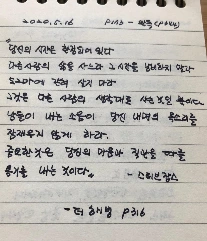 2020.5.16 P113 -
"당신의 시간은 한정되어 있다
다른사람의 삶을 사느라 그 시간을 낭비하지 말라
도그마에 갇혀 살지 마라
그것은 다른 사람의 생각대로 사는 것일 뿐이다.
남들이 내는 소음이 당신 내면의 목소리를
잠재우지 않게 하라.
중요한것은 당신의 마음과 직관을 따를
용기를 내는 것이다" - 스티브잡스
- 더 해빙 P316